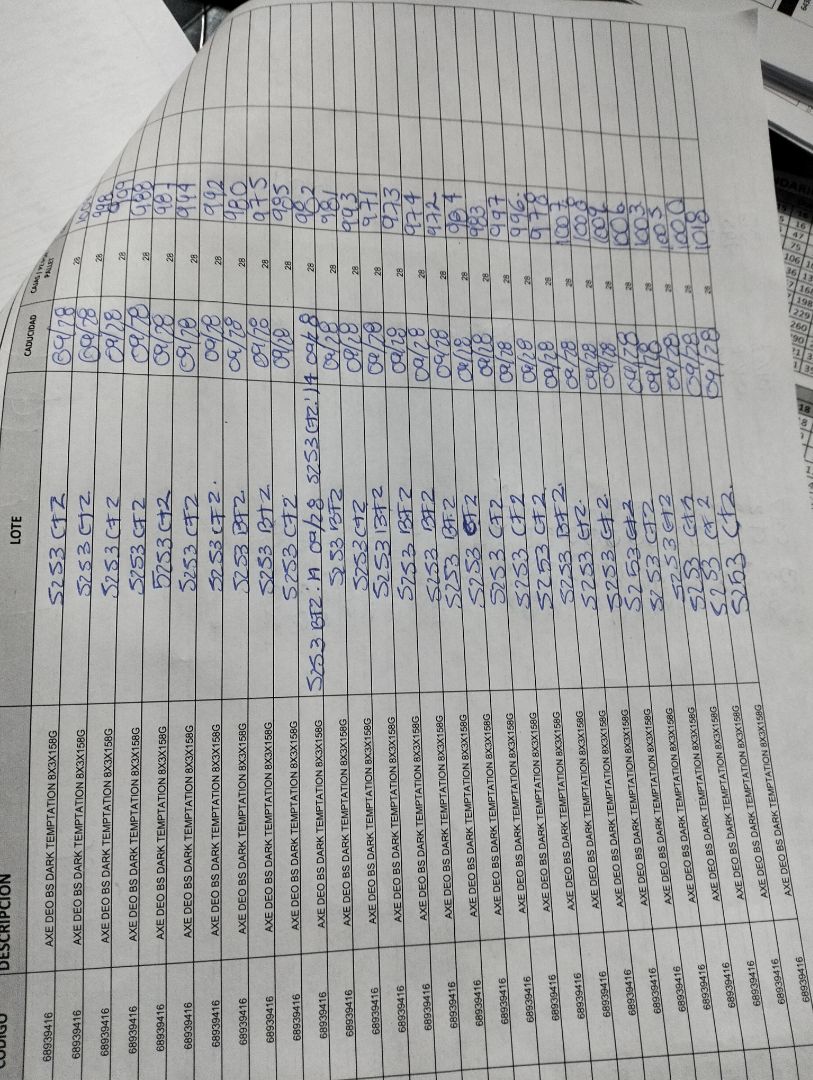 CODIGO DESCRIPCION LOTE CADUCIDAD CAJAS PALLET
68939416 AXE DEO BS DARK TEMPTATION 8X3X158G 5253 CF2 09/28 28
68939416 AXE DEO BS DARK TEMPTATION 8X3X158G 5253 CF2 09/28 28 998
68939416 AXE DEO BS DARK TEMPTATION 8X3X158G 5253 CF2 09/28 28
68939416 AXE DEO BS DARK TEMPTATION 8X3X158G 5253 CF2 09/28 28 988
68939416 AXE DEO BS DARK TEMPTATION 8X3X158G 5253 CF2 09/28 28 987
68939416 AXE DEO BS DARK TEMPTATION 8X3X158G 5253 CF2 09/28 28 944
68939416 AXE DEO BS DARK TEMPTATION 8X3X158G 5253 CF2. 09/28 28 942
68939416 AXE DEO BS DARK TEMPTATION 8X3X158G 5253 BF2 09/28 28 980
68939416 AXE DEO BS DARK TEMPTATION 8X3X158G 5253 BF2 09/28 28 975
68939416 AXE DEO BS DARK TEMPTATION 8X3X158G 5253 CF2 09/28 28 985
68939416 AXE DEO BS DARK TEMPTATION 8X3X158G 5253 BF2:14 09/28 5253 CF2:14 09/28 28 982
68939416 AXE DEO BS DARK TEMPTATION 8X3X158G 5253 BF2 09/28 28 981
68939416 AXE DEO BS DARK TEMPTATION 8X3X158G 5253 CF2 09/28 28 943
68939416 AXE DEO BS DARK TEMPTATION 8X3X158G 5253 BF2 09/28 28 971
68939416 AXE DEO BS DARK TEMPTATION 8X3X158G 5253 BF2 09/28 28 973
68939416 AXE DEO BS DARK TEMPTATION 8X3X158G 5253 BF2 09/28 28 974
68939416 AXE DEO BS DARK TEMPTATION 8X3X158G 5253 BF2 09/28 28 972
68939416 AXE DEO BS DARK TEMPTATION 8X3X158G 5253 CF2 09/28 28 984
68939416 AXE DEO BS DARK TEMPTATION 8X3X158G 5253 CF2 09/28 28 983
68939416 AXE DEO BS DARK TEMPTATION 8X3X158G 5253 CF2 09/28 28 997
68939416 AXE DEO BS DARK TEMPTATION 8X3X158G 5253 CF2 09/28 28 996
68939416 AXE DEO BS DARK TEMPTATION 8X3X158G 5253 BF2. 09/28 28 978
68939416 AXE DEO BS DARK TEMPTATION 8X3X158G 5253 CF2. 09/28 28 1007
68939416 AXE DEO BS DARK TEMPTATION 8X3X158G 5253 CF2. 09/28 28 1008
68939416 AXE DEO BS DARK TEMPTATION 8X3X158G 5253 CF2 09/28 28 1009
68939416 AXE DEO BS DARK TEMPTATION 8X3X158G 5253 CF2 09/28 28 1006
68939416 AXE DEO BS DARK TEMPTATION 8X3X158G 5253 CF2 09/28 28 1003
68939416 AXE DEO BS DARK TEMPTATION 8X3X158G 5253 CF2 09/28 28 1005
68939416 AXE DEO BS DARK TEMPTATION 8X3X158G 5253 CF2 09/28 28 1000
68939416 AXE DEO BS DARK TEMPTATION 8X3X158G 5253 CF2. 09/28 28 1018